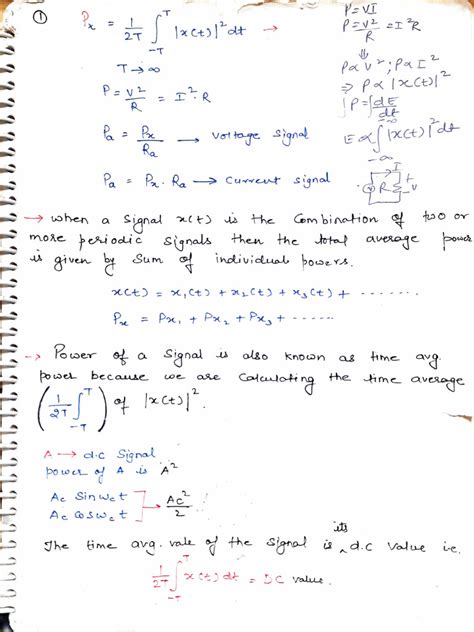 ①
Pₓ = 1/2T ∫_{-T}^{T} |x(t)|² dt →
T → ∞
P = V²/R = I²·R
Pa = Px/Ra → Voltage Signal
Pa = Px · Ra → Current Signal
P = VI
P = V²/R = I²R
⇓
P ∝ V² ; P ∝ I²
⇒ P ∝ |x(t)|²
E ∝ ∫_{-∞}^{∞} |x(t)|² dt
I
R
+
V
-
→ when a Signal x(t) is the Combination of two or
more periodic Signals then the total average power
is given by Sum of individual powers.
x(t) = x₁(t) + x₂(t) + x₃(t) + ......
Pₓ = Px₁ + Px₂ + Px₃ + ......
→ Power of a Signal is also known as time avg.
power because we are Calculating the time average
(1/2T ∫_{-T}^{T}) of |x(t)|².
A → d.c Signal
power of A is A²
Ac Sinωct
Ac Cosωct
→ Ac²/2
The time avg. vale of the Signal is its d.c Value i.e.
1/2T ∫_{-T}^{T} x(t) dt = DC value.